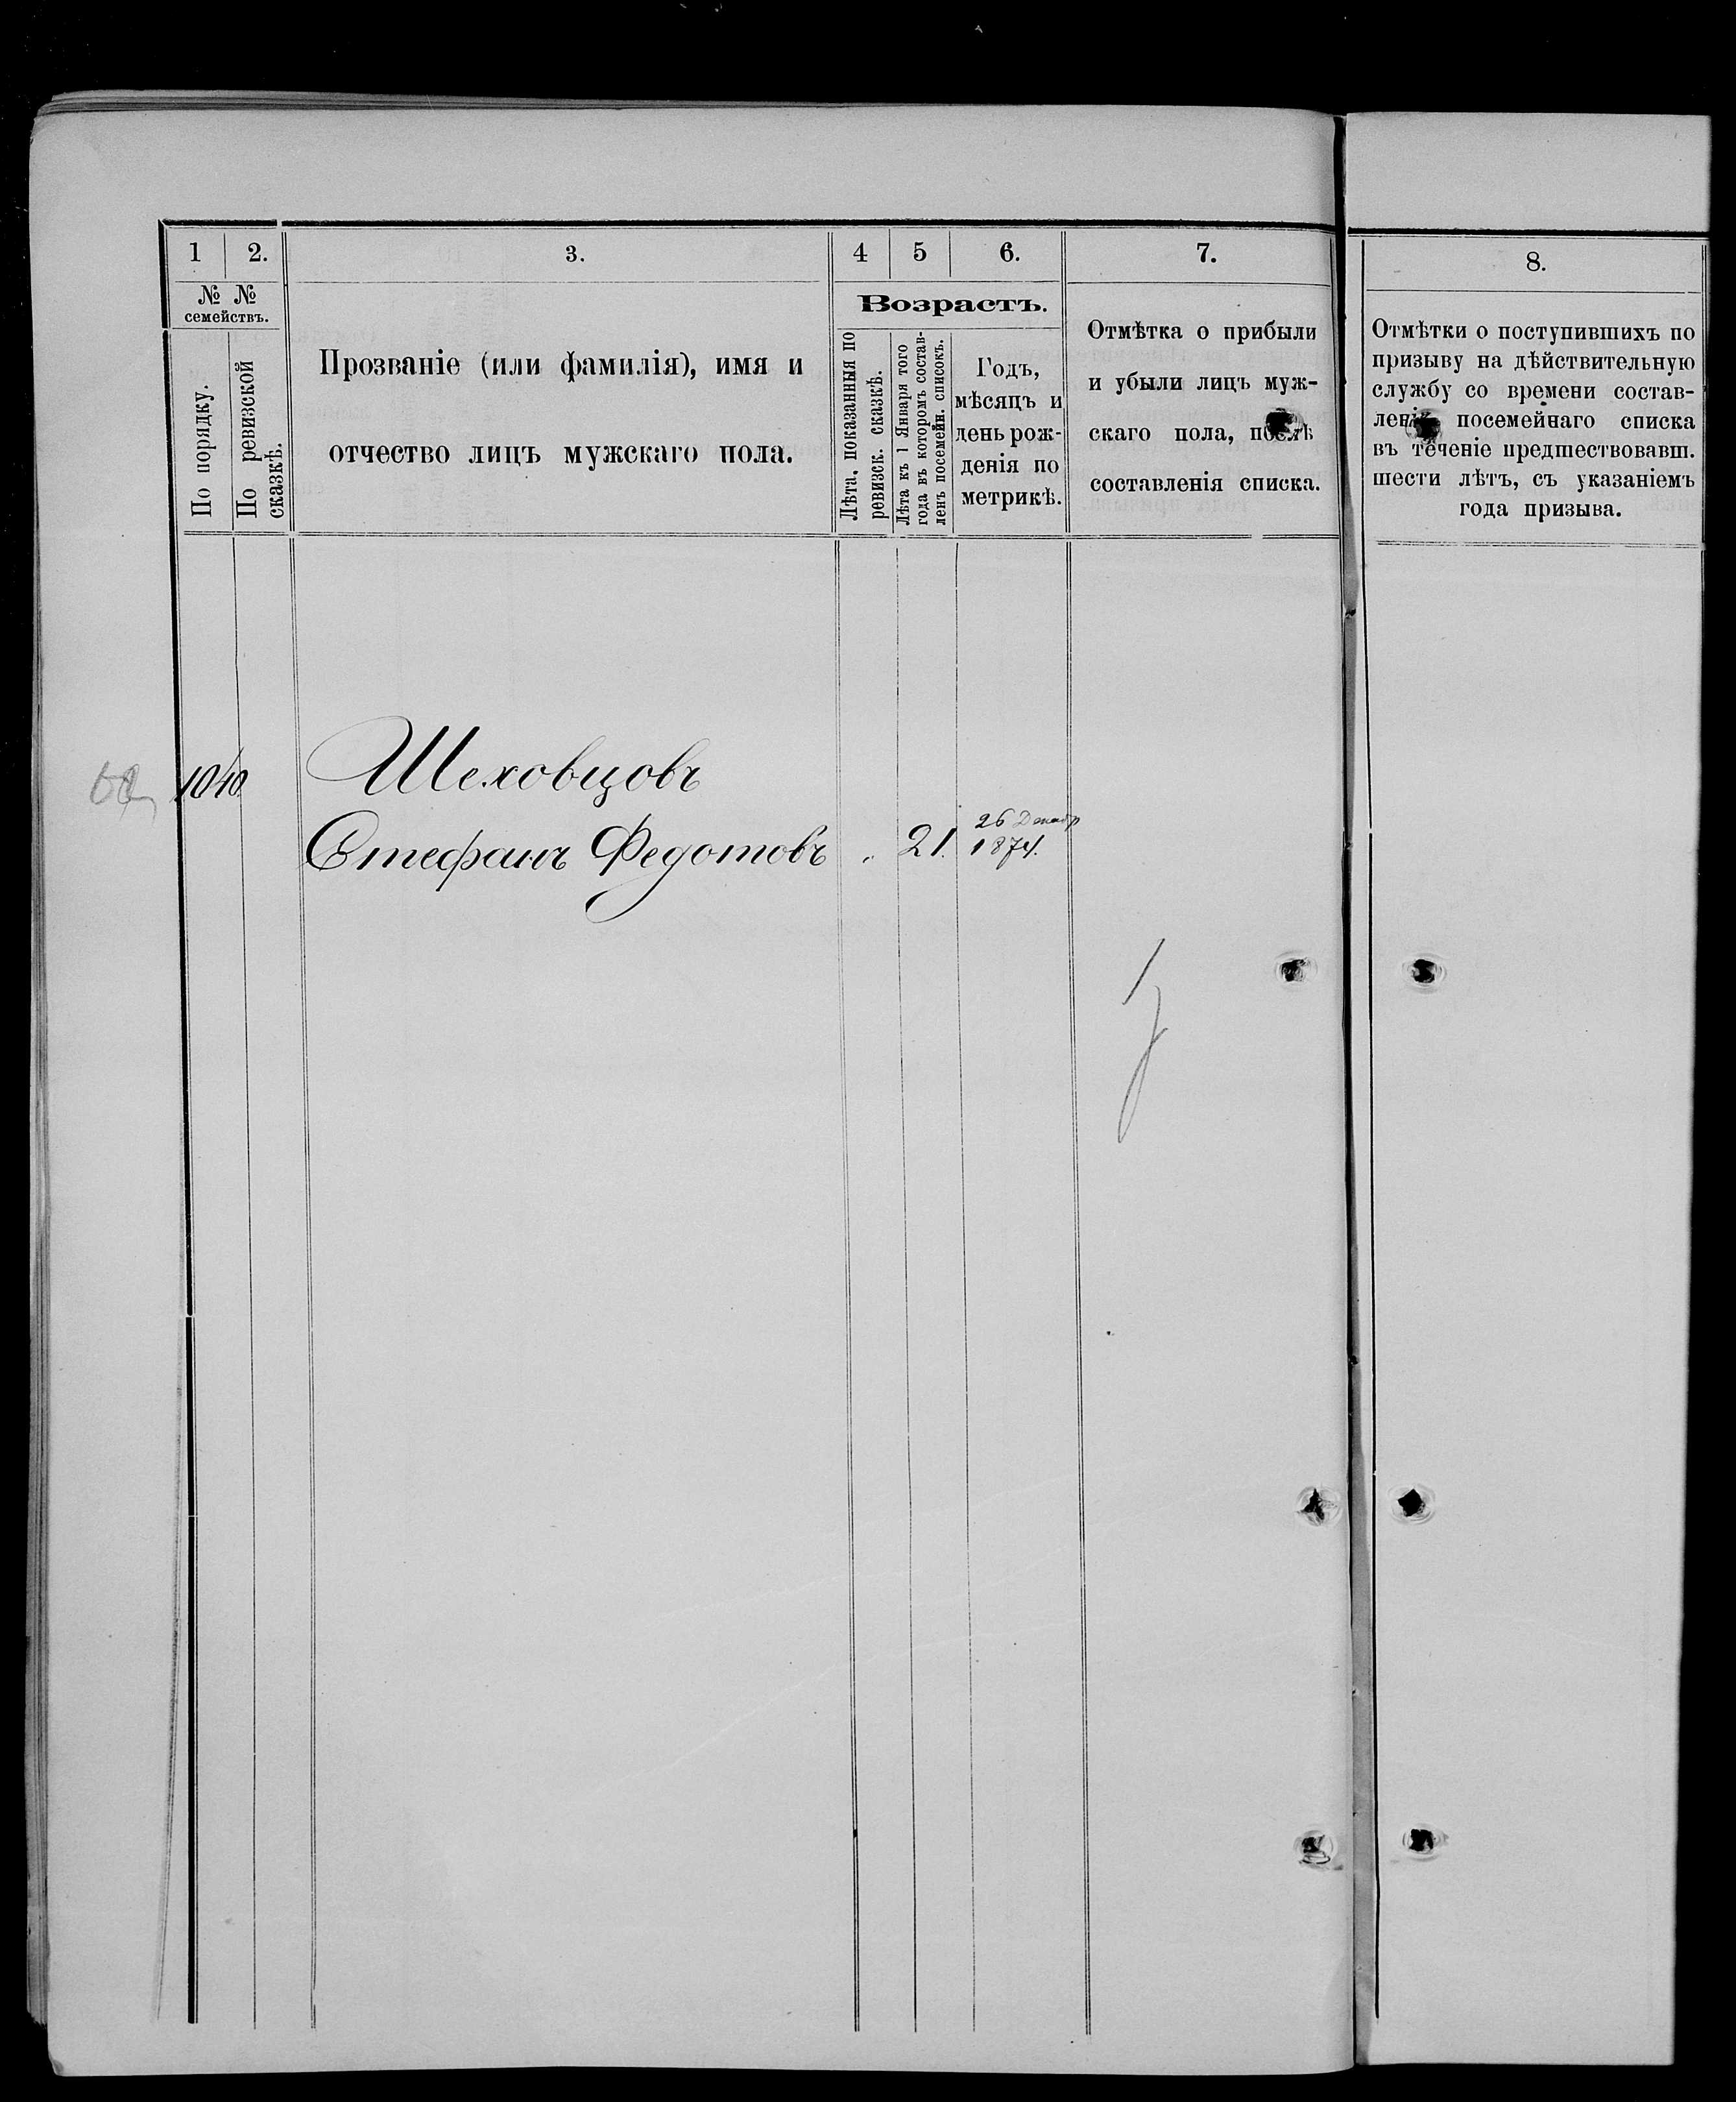 1
2.
3.
4
5
6.
7.
8.
№ №
семействъ.
По порядку.
По ревизской
сказкѣ.
Прозваніе (или фамилія), имя и
отчество лицъ мужскаго пола.
Возрастъ.
Лѣта, показанныя по
ревизск. сказкѣ.
Лѣта къ 1 Января того
года въ которомъ состав-
ленъ посемейн. списокъ.
Годъ,
мѣсяцъ и
день рож-
денія по
метрикѣ.
Отмѣтка о прибыли
и убыли лицъ муж-
скаго пола, послѣ
составленія списка.
Отмѣтки о поступившихъ по
призыву на дѣйствительную
службу со времени состав-
леніи посемейнаго списка
въ теченіе предшествовавш.
шести лѣтъ, съ указаніемъ
года призыва.
1040.
Шеховцовъ
Стефанъ Федотовъ
„
21.
26 Декабр
1874.